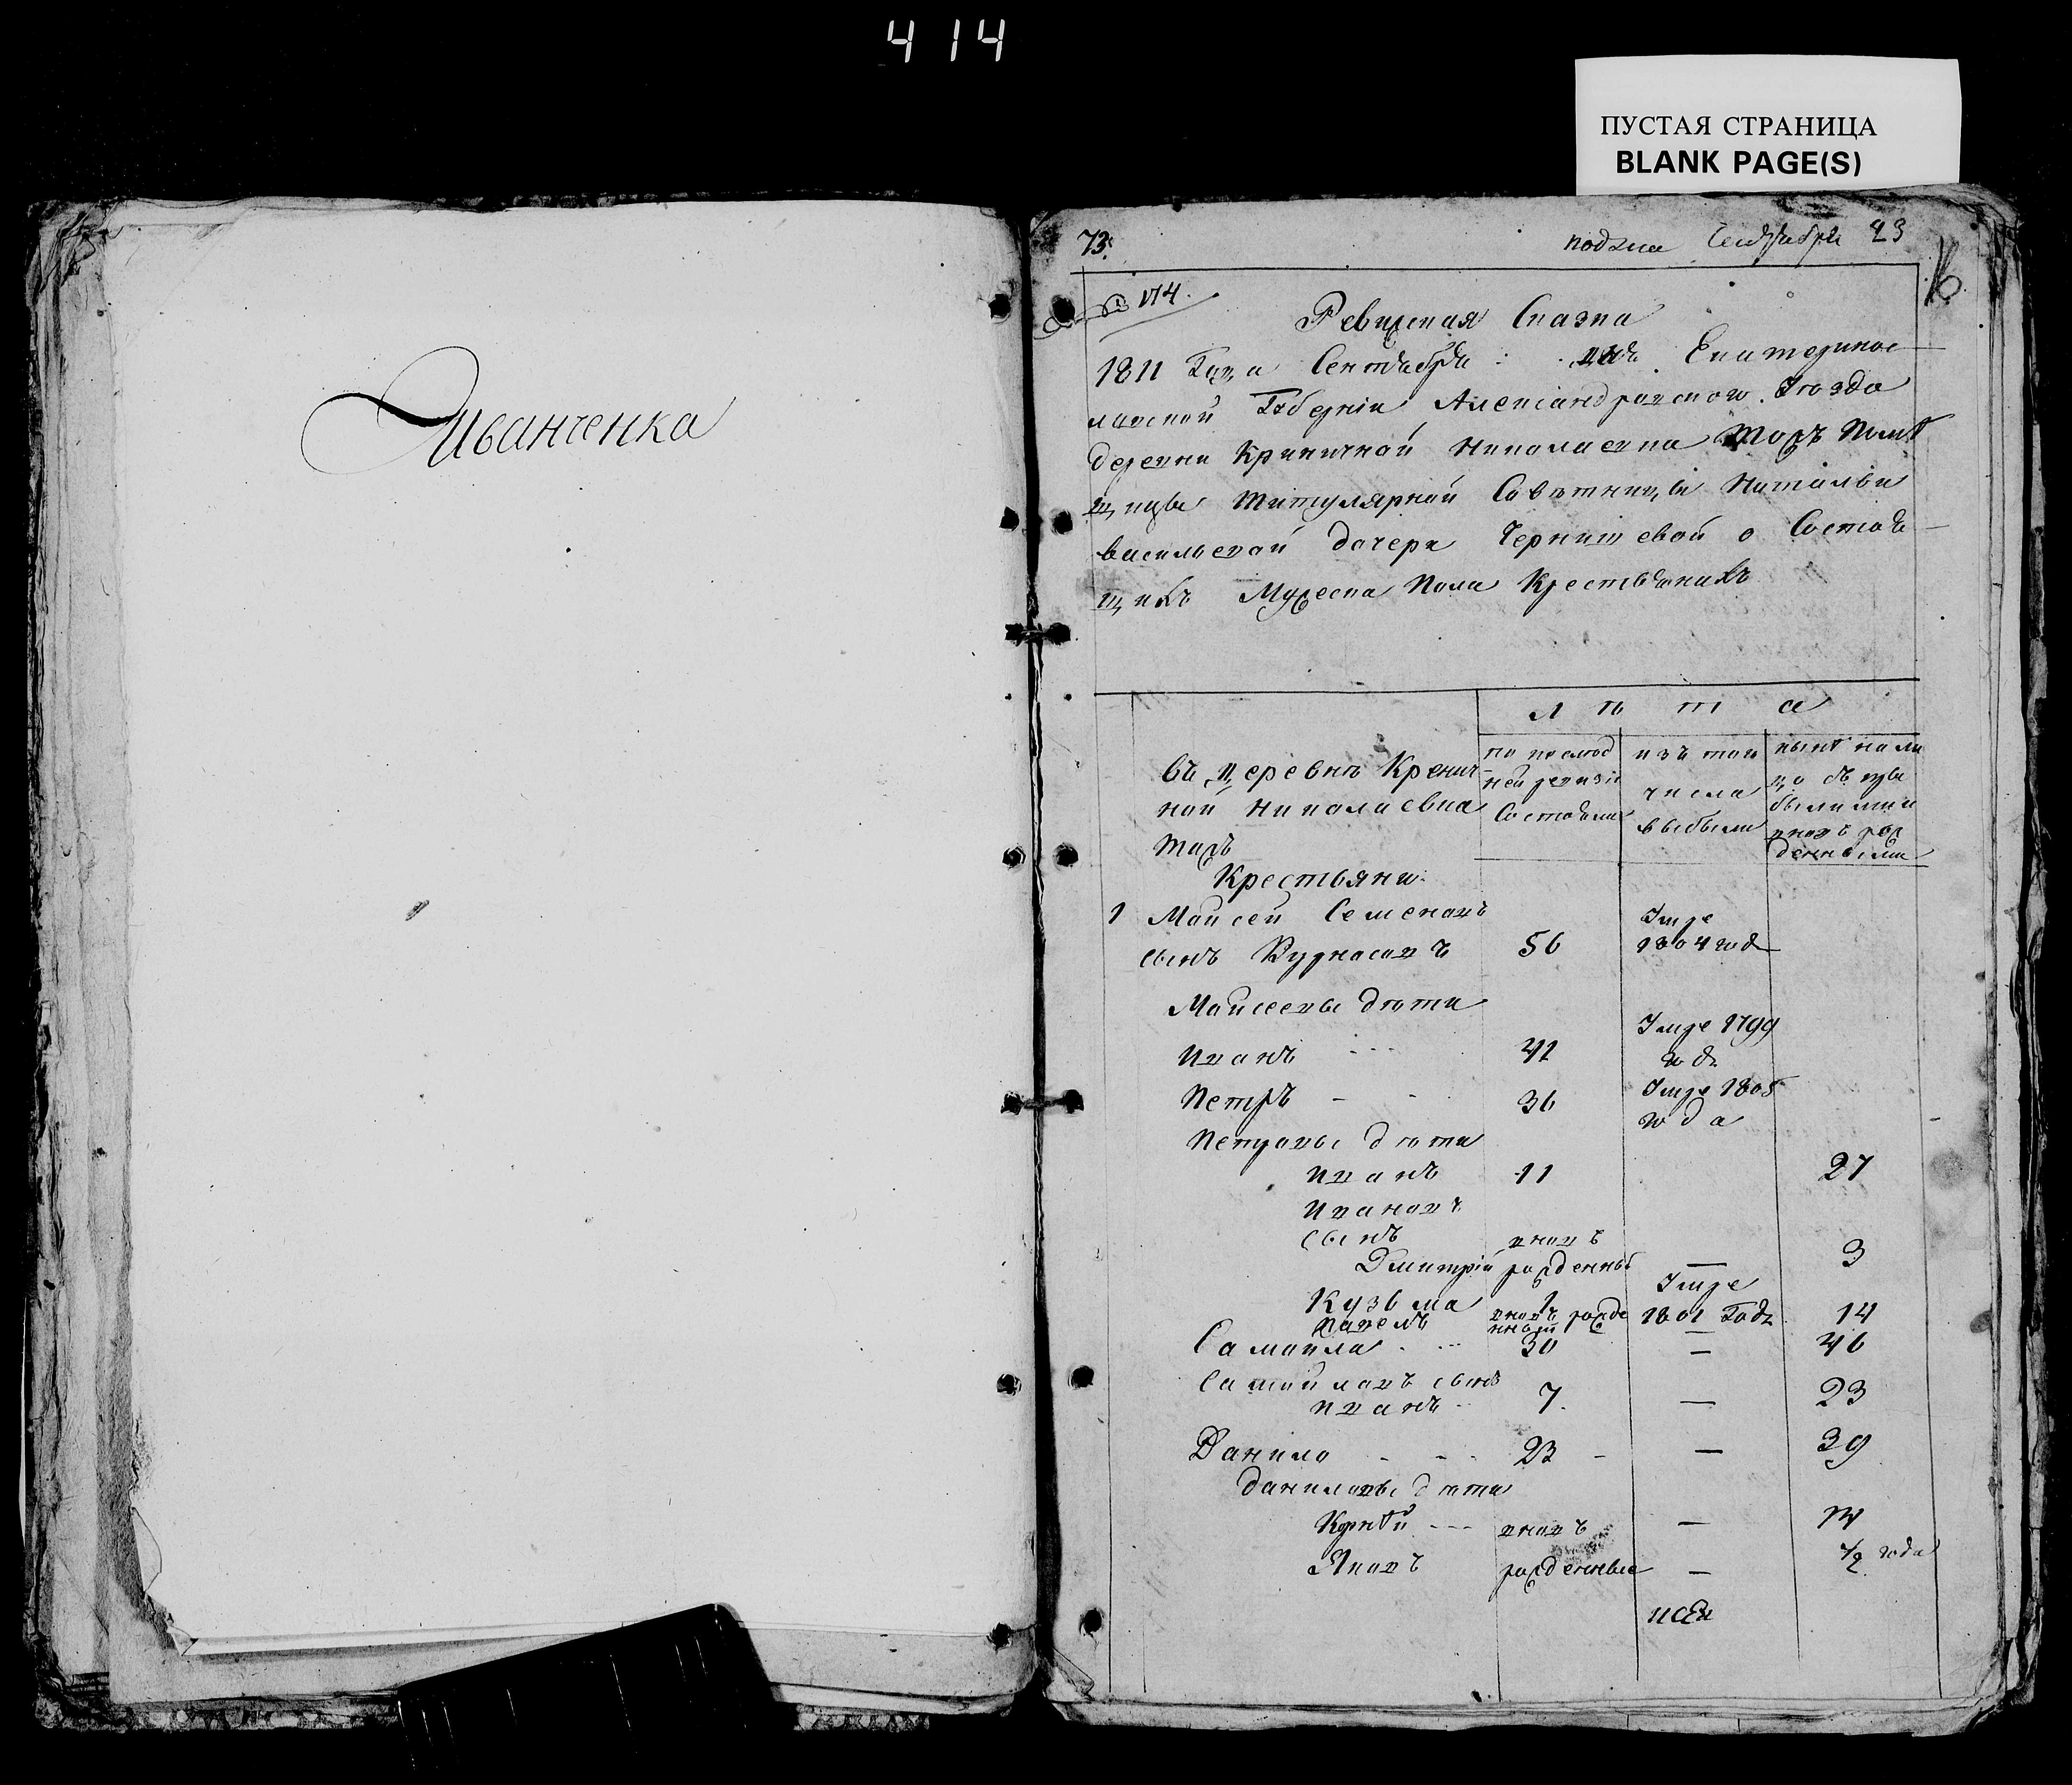 414
ПУСТАЯ СТРАНИЦА
BLANK PAGE(S)
Иванченка
73.
подана Сентября 23
16
№ 174.
Ревижская Сказка
1811 Года Сентября дня Екатеринос
лавской Губерніи Александровского Уезда
деревни Криничной Николаевка тожъ Помѣ
щицы Титулярной Совѣтницы Натальи
васильевой дочери Чернишевой о Состоя
щихъ Мужеска Пола Крестьянахъ
Лѣта
въ деревнѣ Кринич
ной Николаевка
тожъ
по послѣд
ней ревизіи
Состояли
изъ того
числа
выбыли
нынѣ на ли
цо съ при
былыми и
вновь рож
денными
Крестьяни
1 Мойсей Семеновъ
сынъ Курносовъ 56 Умре 1804 года
Мойсеевы дѣти
Иванъ 41 Умре 1799 года
Петръ 36 Умре 1805 года
Петровы дѣти
Иванъ 11 27
Ивановъ
сынъ
Дмитрій вновь рожденный — 3
Кузьма 1 Умре 1801 Года
Павелъ вновь рожденный 14
Самойла 30 — 46
Самойловъ сынъ
Иванъ 7. — 23
Данило 23 — 39
Даниловы дѣти
Корнѣй вновь —
Яковъ рожденные — 1/2 года